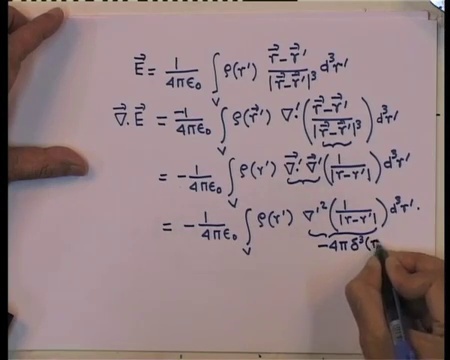 E⃗ = 1/4πϵ₀ ∫_V ρ(r') (r⃗-r⃗')/|r⃗-r⃗'|³ d³r'
∇⃗.E⃗ = -1/4πϵ₀ ∫_V ρ(r⃗') ∇'.((r⃗-r⃗')/|r⃗-r⃗'|³) d³r'
= -1/4πϵ₀ ∫_V ρ(r') ∇⃗'.∇⃗'(1/|r-r'|) d³r'
= -1/4πϵ₀ ∫_V ρ(r') ∇'²(1/|r-r'|) d³r'.
-4πδ³(r